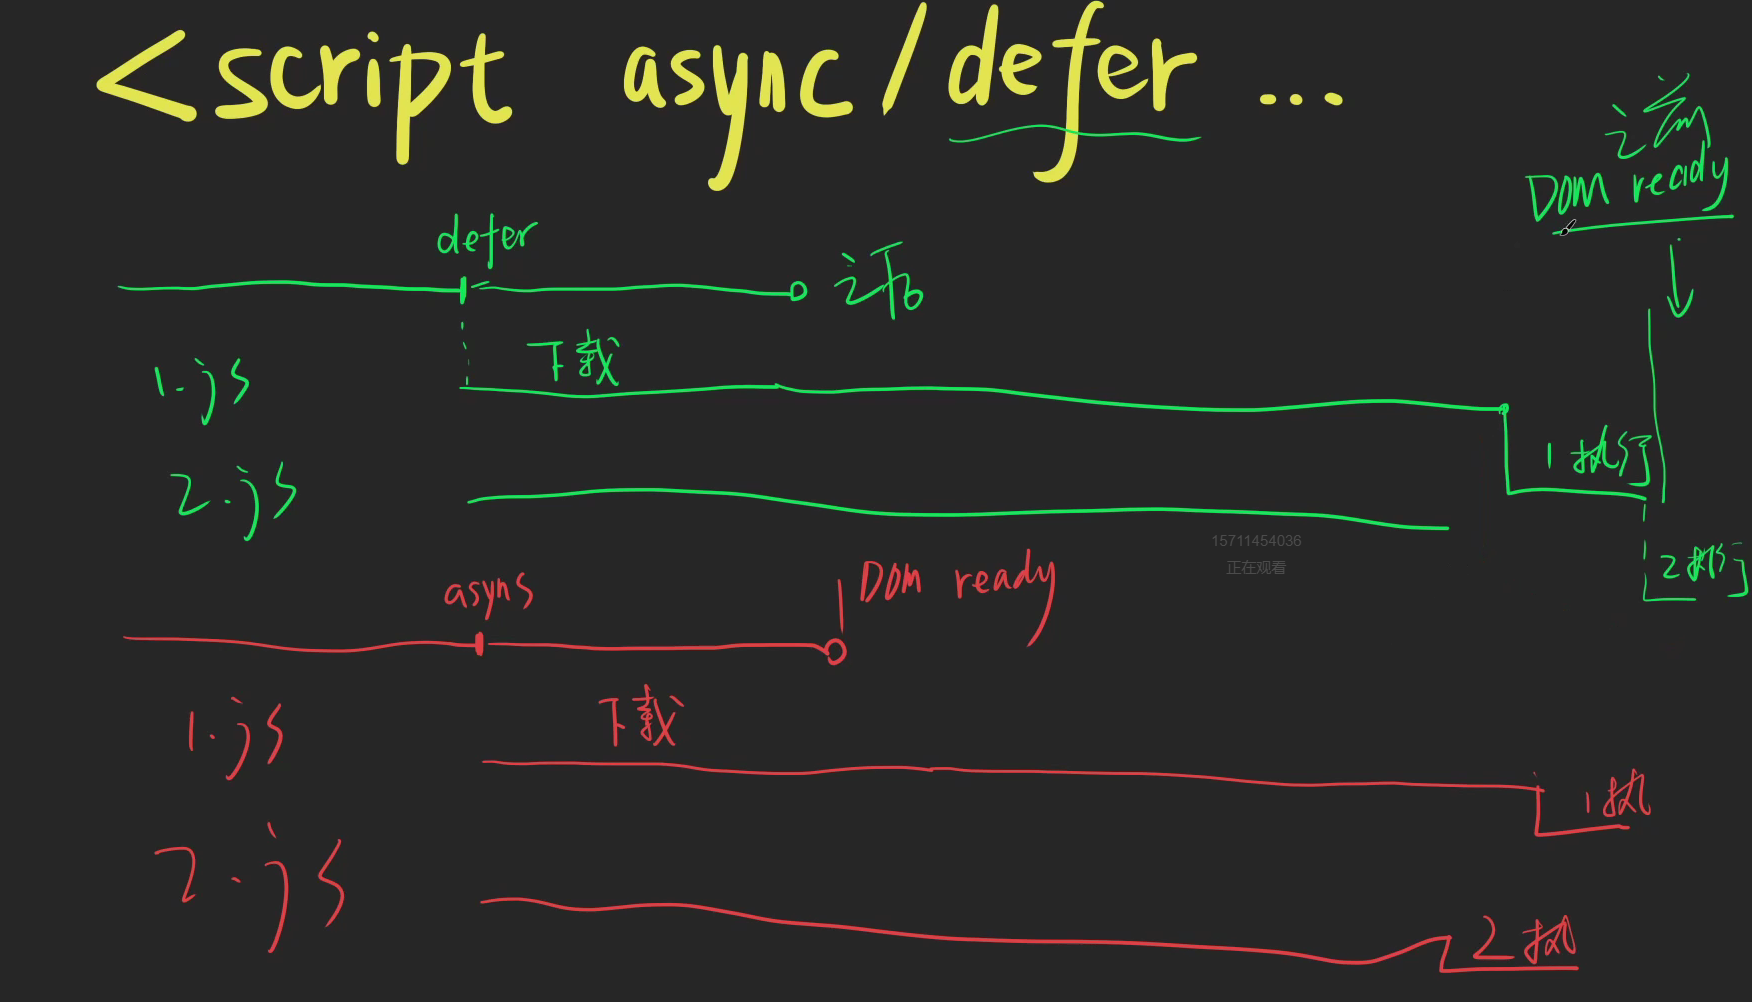 <script async/defer ...
DOM ready
defer
下载
1.js
1 执行
2.js
15711454036
正在观看
2 执行
asyns
DOM ready
1.js
下载
1 执
2.js
2 执